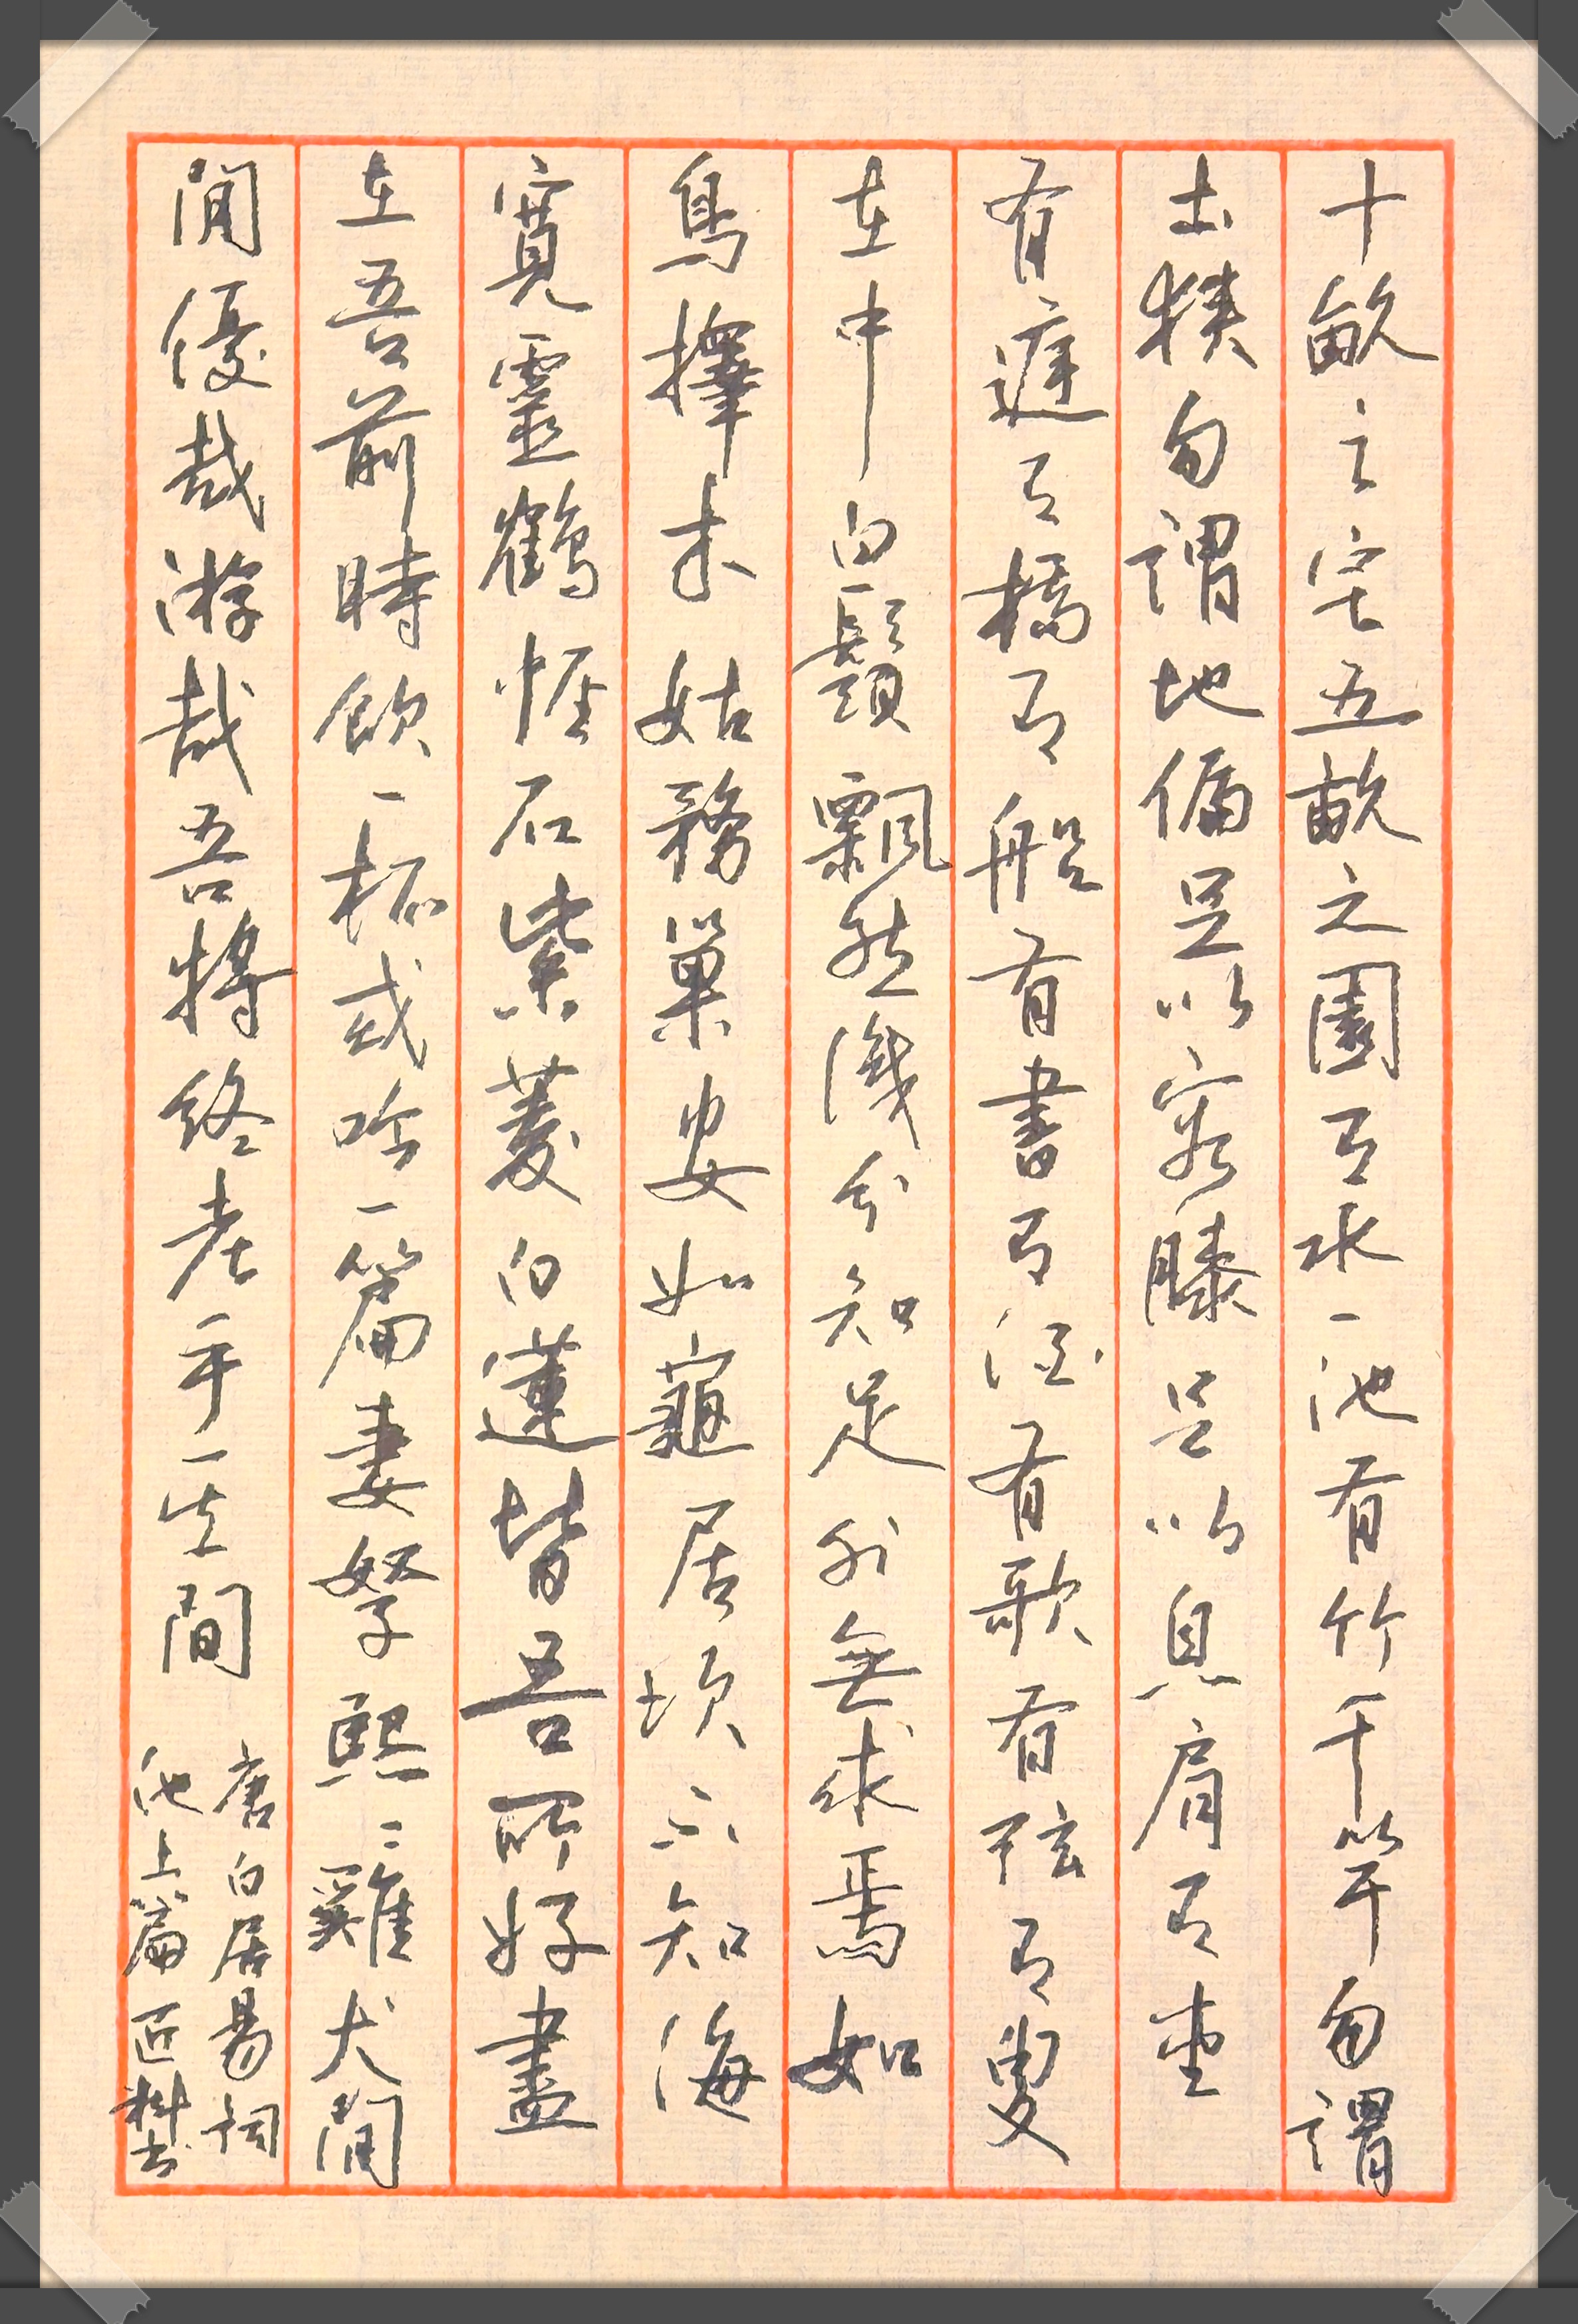 十畝之宅五畝之園有水一池有竹千竿勿謂
土狹勿謂地偏足以容膝足以息肩有堂
有庭有橋有船有書有酒有歌有弦有叟
在中白鬚飄然識分知足外無求焉如
鳥擇木姑務巢安如龜居坎不知海
寬靈鶴怪石紫菱白蓮皆吾所好盡
在吾前時飲一杯或吟一篇妻孥熙〻雞犬閒
閒優哉游哉吾將終老乎其間
唐白居易詞
池上篇